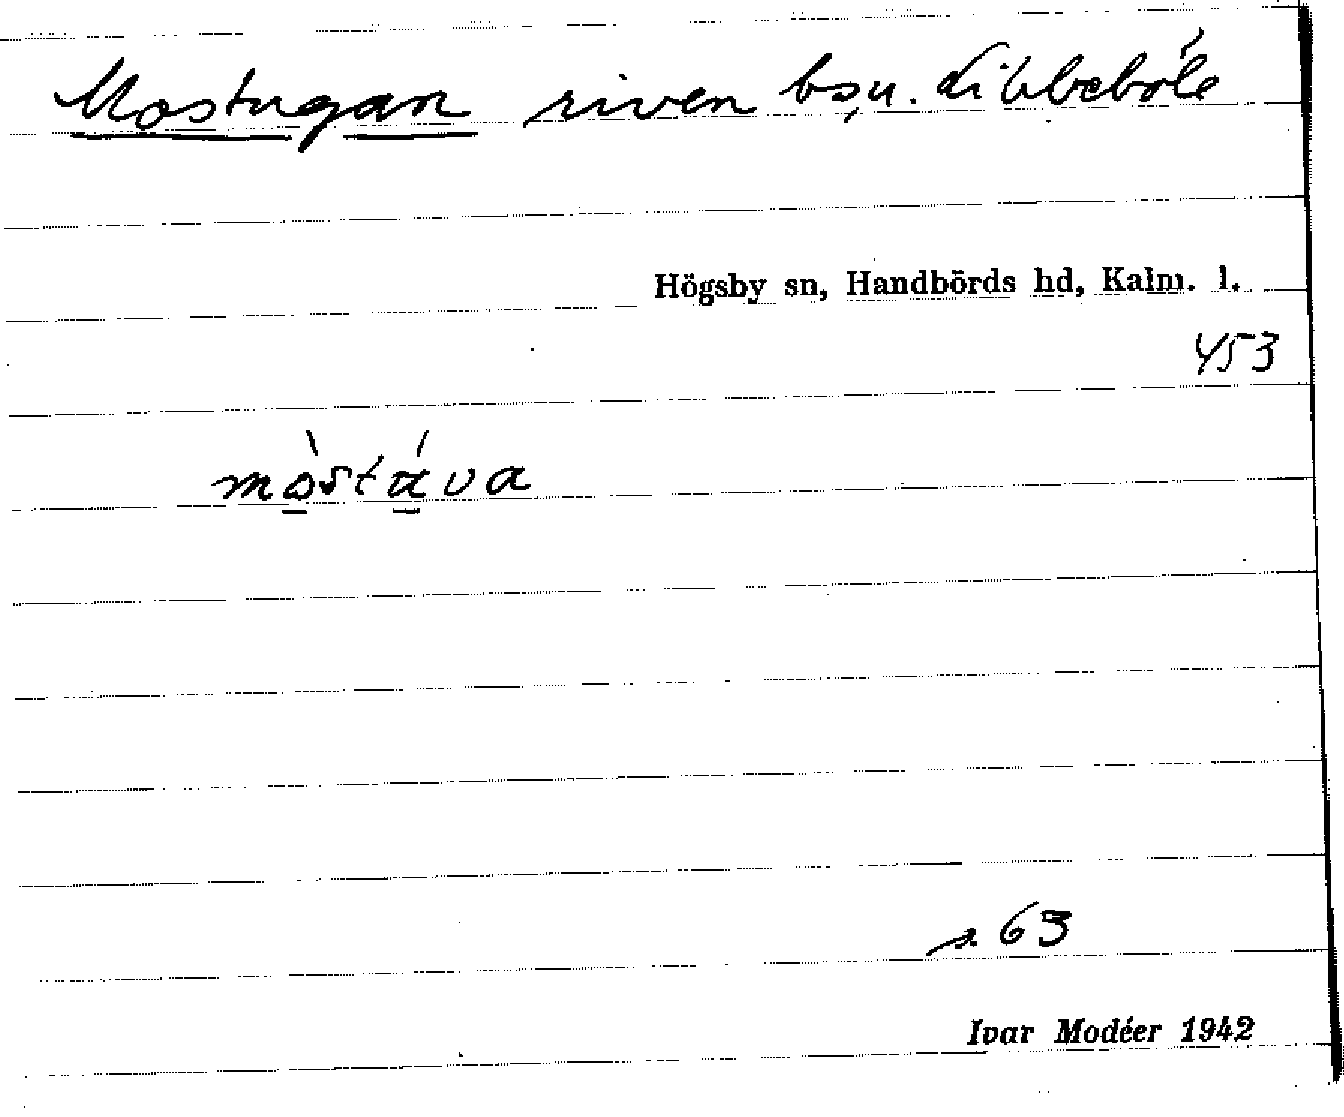 Mostugan riven bsn. Libbeböle
Högsby sn, Handbörds hd, Kalm. l.
453
mòstáva
s. 63
Ivar Modéer 1942